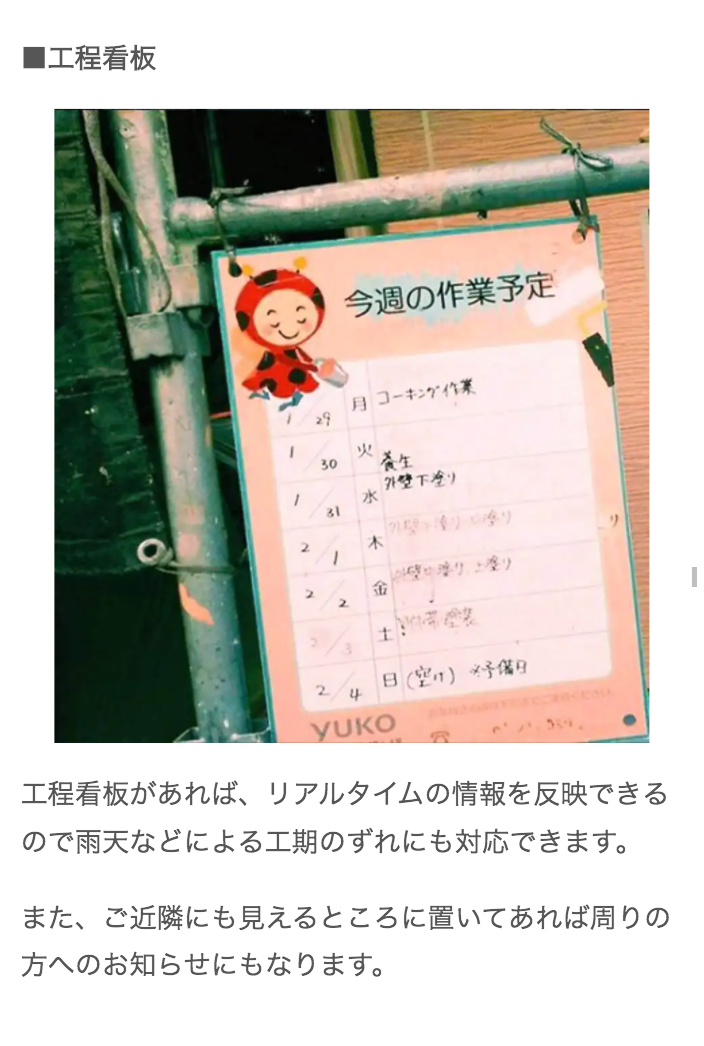 ■工程看板
今週の作業予定
1/29 月 コーキング作業
1/30 火 養生
1/31 水 外壁下塗り
2/1 木 外壁 塗り 塗り
2/2 金 外壁中塗り、上塗り
2/3 土 付帯塗装
2/4 日 (空け) ※予備日
YUKO
工程看板があれば、リアルタイムの情報を反映できる
ので雨天などによる工期のずれにも対応できます。
また、ご近隣にも見えるところに置いてあれば周りの
方へのお知らせにもなります。